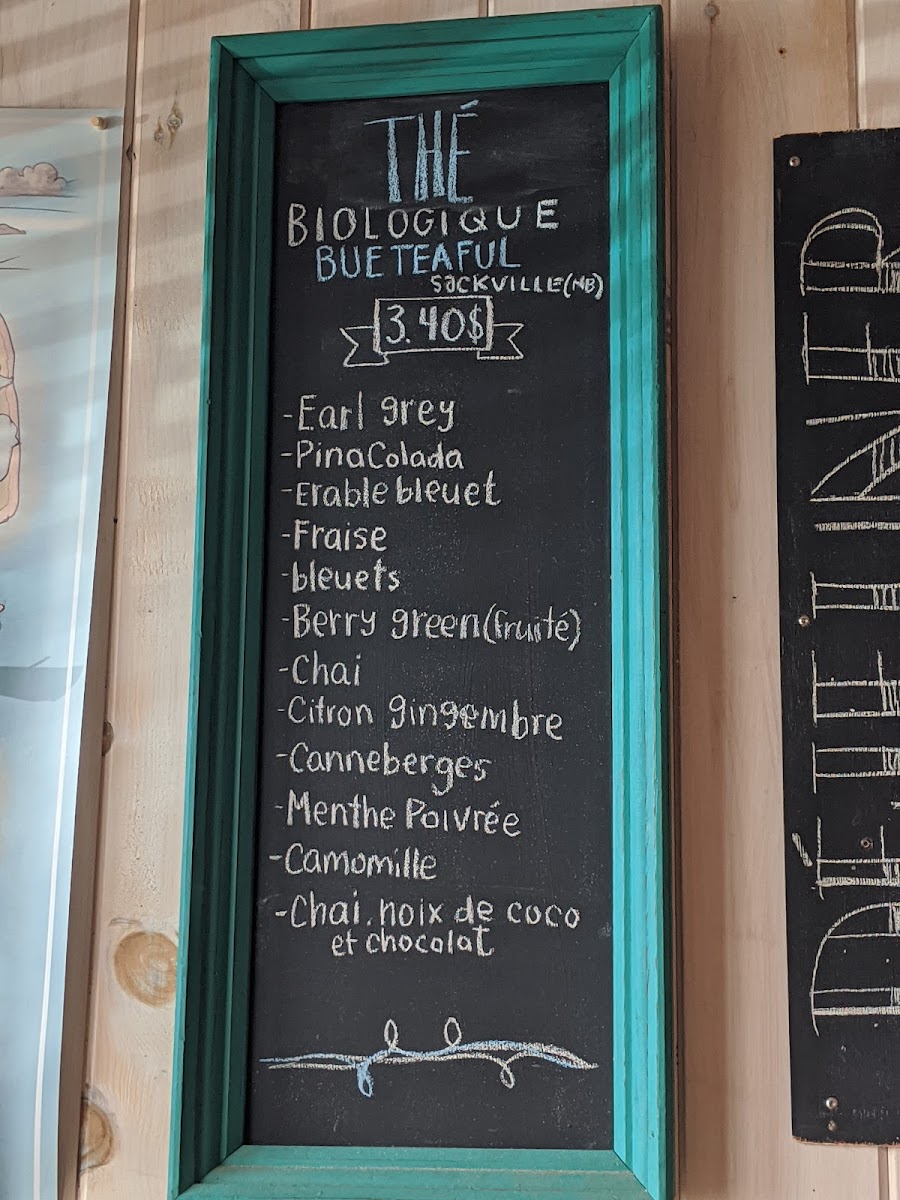 THÉ
BIOLOGIQUE
BUETEAFUL
SACKVILLE(NB)
3.40$
-Earl grey
-Pina Colada
-Erable bleuet
-Fraise
-bleuets
-Berry green (fruité)
-Chai
-Citron gingembre
-Canneberges
-Menthe Poivrée
-Camomille
-Chai. noix de coco
et chocolat
DÉJEUNER